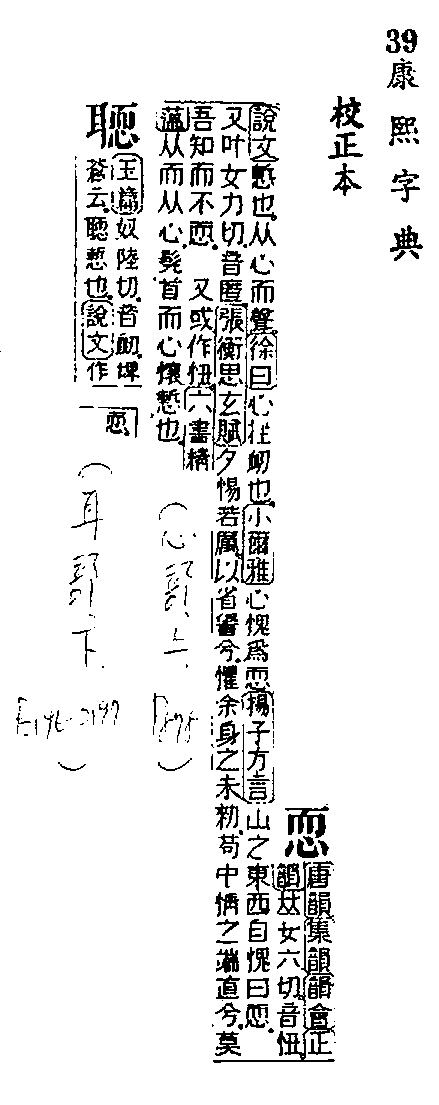 39康熙字典
校正本
恧
唐韻集韻韻會正
韻𠀤女六切音忸
說文慙也从心而聲徐曰心挫衂也小爾雅心愧爲恧揚子方言山之東西自愧曰恧
又叶女力切音匿張衡思玄賦夕惕若厲以省諐兮懼余身之未勑苟中情之端直兮莫
吾知而不恧 又或作忸六書精
薀从而从心髡首而心懷慙也
聏
玉篇奴陸切音衂埤
蒼云聏慙也說文作
恧
(心部上 P878)
(耳部下 P2196-2197)